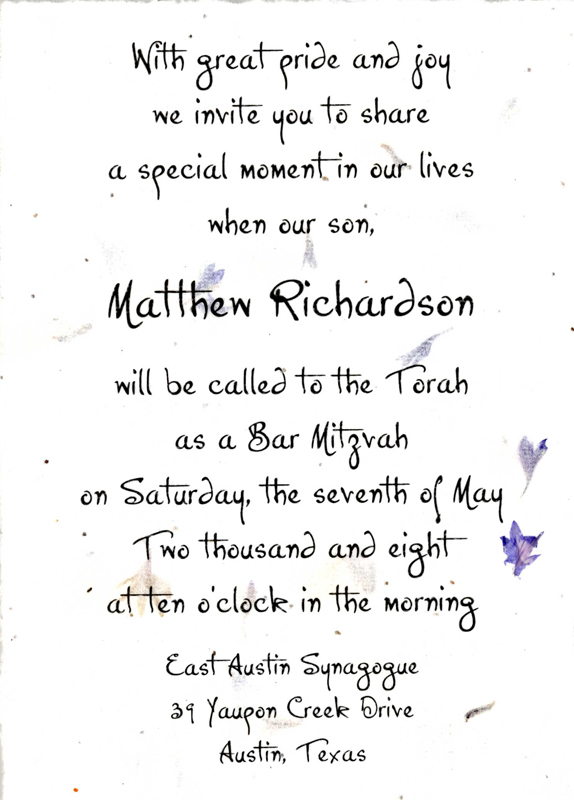 With great pride and joy
we invite you to share
a special moment in our lives
when our son,
Matthew Richardson
will be called to the Torah
as a Bar Mitzvah
on Saturday, the seventh of May
Two thousand and eight
at ten o'clock in the morning
East Austin Synagogue
39 Yaupon Creek Drive
Austin, Texas